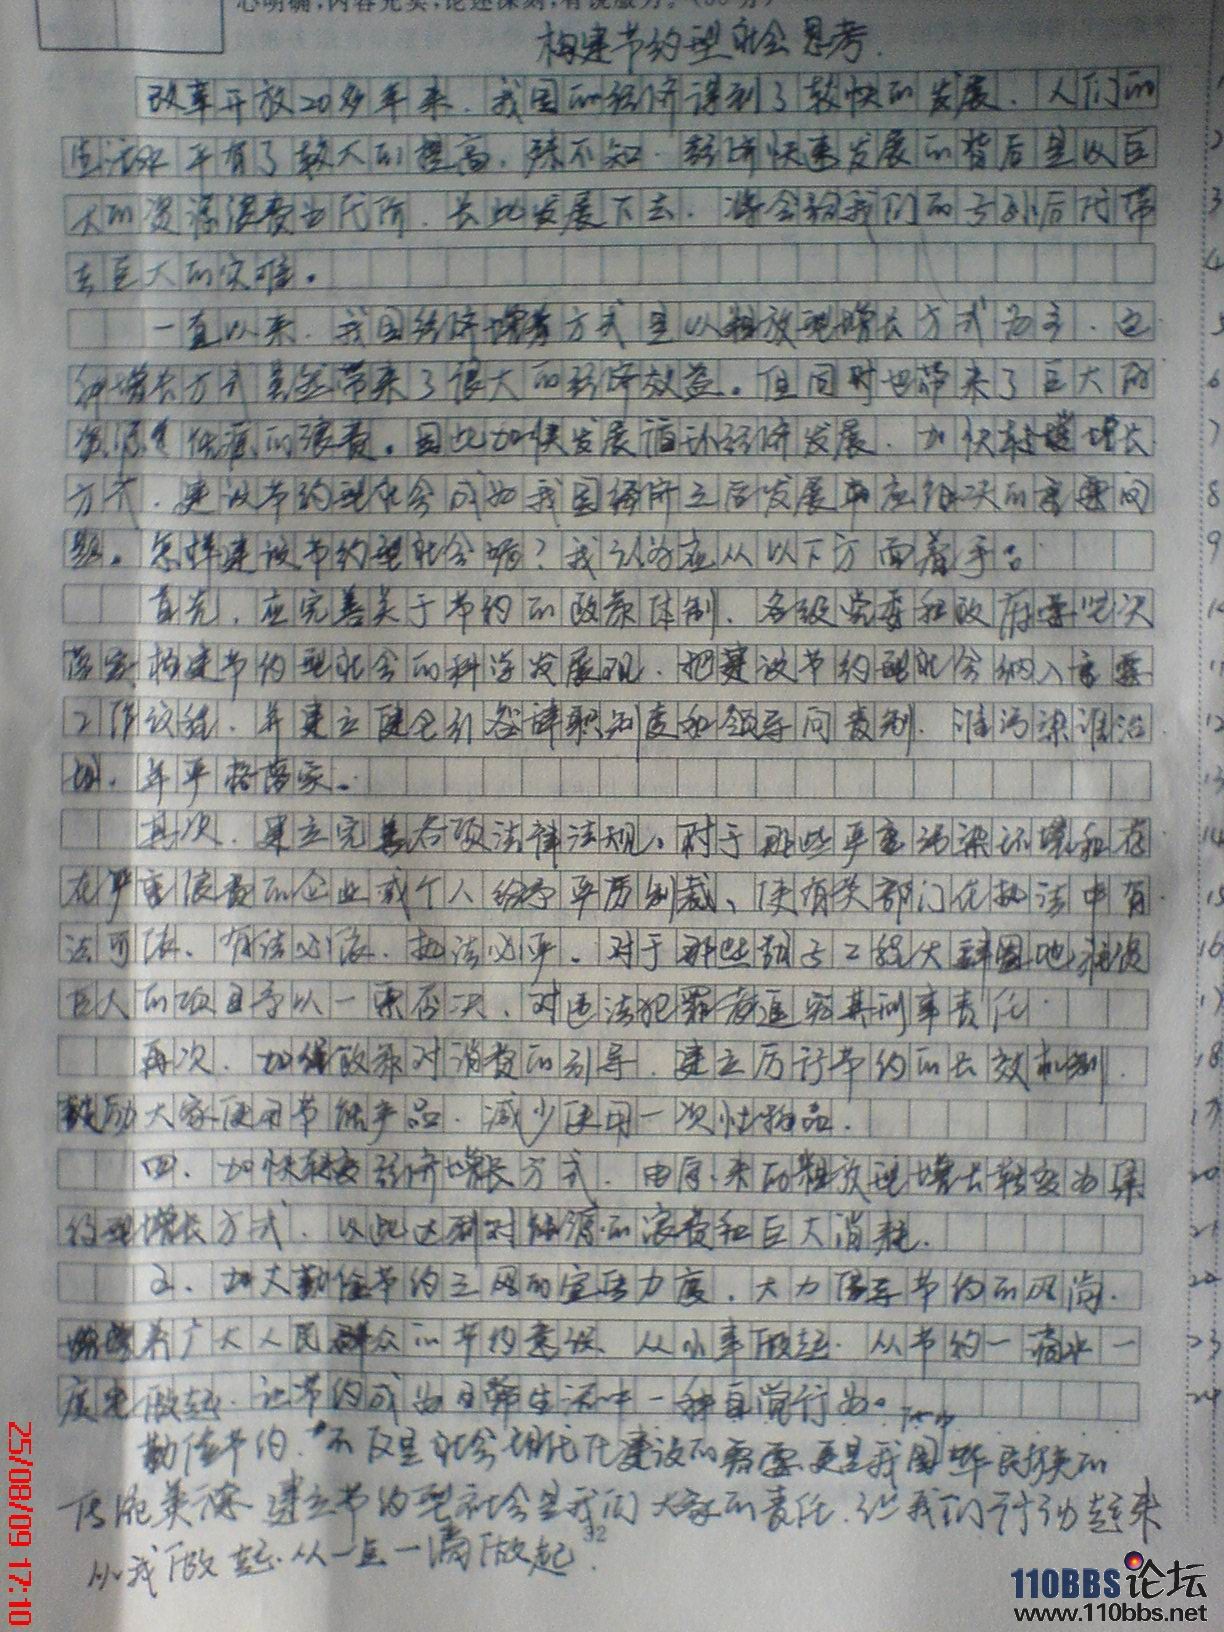 心明确,内容充实,论述深刻,有说服力。
构建节约型社会思考.
改革开放20多年来,我国的经济得到了较快的发展,人们的
生活水平有了较大的提高,殊不知,经济快速发展的背后是以巨
大的资源浪费为代价,长此发展下去,将会给我们的子孙后代带
去巨大的灾难。
一直以来,我国经济增长方式是以粗放型增长方式为主,这
种增长方式虽然带来了很大的经济效益。但同时也带来了巨大的
资源能源的浪费。因此加快发展循环经济发展,加快转变增长
方式,建设节约型社会成为我国经济之后发展应解决的重要问
题。怎样建设节约型社会呢?我认为应从以下方面着手:
首先,应完善关于节约的政策体制,各级党委和政府要坚决
落实构建节约型社会的科学发展观,把建设节约型社会纳入重要
工作议程,并建立健全引咎辞职制度和领导问责制,谁污染谁治
理,并严格落实。
其次,建立完善各项法律法规。对于那些严重污染环境和存
在严重浪费的企业或个人给予严厉制裁、使有关部门在执法中有
法可依、有法必依、执法必严。对于那些面子工程大肆圈地浪费
巨大的项目予以一票否决,对违法犯罪者追究其刑事责任.
再次,加强政策对消费的引导,建立厉行节约的长效机制,
鼓励大家使用节能产品,减少使用一次性物品.
四、加快转变经济增长方式,由原来的粗放型增长转变为集
约型增长方式,以此达到对能源的浪费和巨大消耗.
五、加大勤俭节约之风的宣传力度,大力倡导节约的风尚,
增强广大人民群众的节约意识、从小事做起,从节约一滴水一
度电做起,让节约成为日常生活中一种自觉行为。
勤俭节约,不仅是社会现代化建设的需要更是我国中华民族的
传统美德 建立节约型社会是我们大家的责任,让我们行动起来
从我做起.从一点一滴做起.
25/08/09 17:10
110BBS论坛
www.110bbs.net